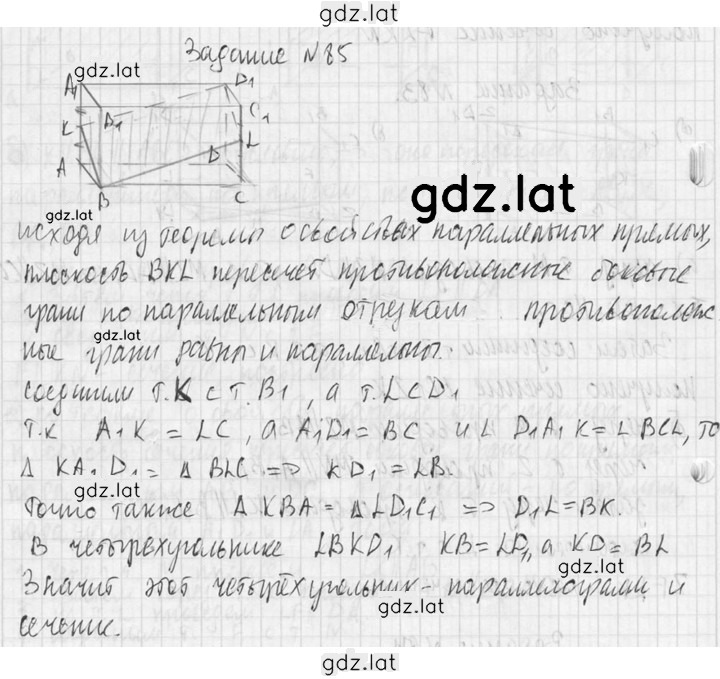 gdz.lat
Задание N85
gdz.lat
A1 D1
B1 C1
K L
A D
B C
gdz.lat
исходя из теоремы о свойствах параллельных прямых,
плоскость BKL пересечет противоположные боковые
грани по параллельным отрезкам. противополож
gdz.lat
ные грани равны и параллельны.
соединим т.K с т.B1, а т.L с D1
т.к A1K = LC, а A1D1 = BC и ∠ D1A1K = ∠ BCL, то
Δ KA1D1 = Δ BLC => KD1 = LB.
Точно также Δ KBA = Δ LD1C1 => D1L = BK.
В четырехугольнике LBKD1 KB = LD1, а KD = BL
gdz.lat
Значит этот четырёхугольник - параллелограмм и
gdz.lat
сечение.
gdz.lat